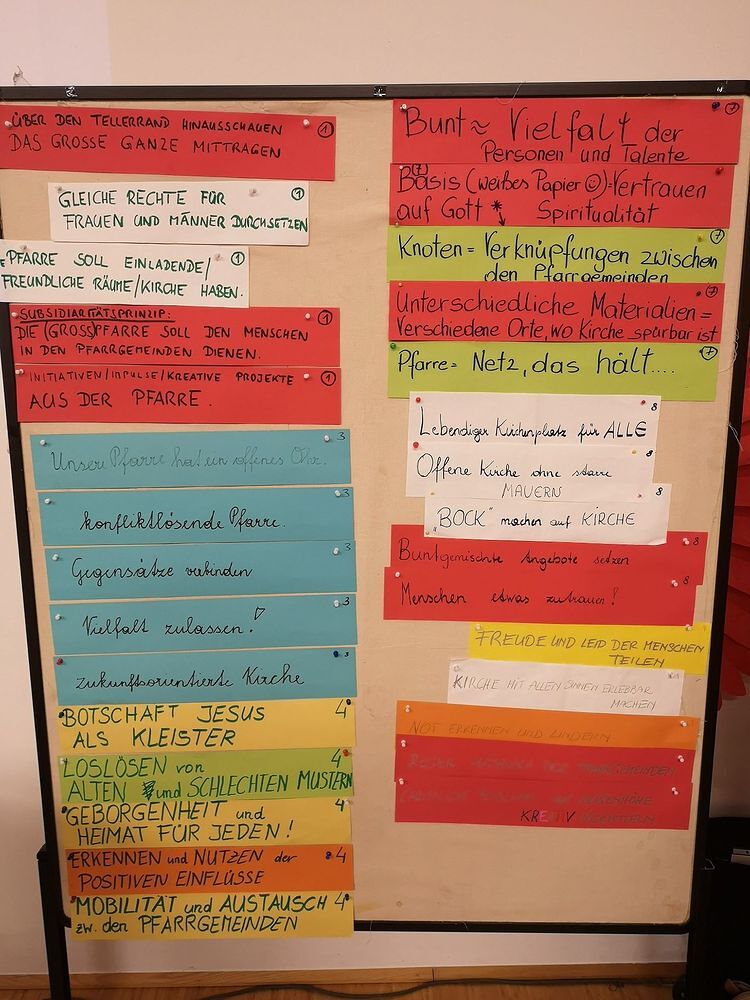 ÜBER DEN TELLERRAND HINAUSSCHAUEN 1
DAS GROSSE GANZE MITTRAGEN
GLEICHE RECHTE FÜR 1
FRAUEN UND MÄNNER DURCHSETZEN
PFARRE SOLL EINLADENDE/ 1
FREUNDLICHE RÄUME/KIRCHE HABEN.
SUBSIDIARITÄTSPRINZIP: 1
DIE (GROSS)PFARRE SOLL DEN MENSCHEN
IN DEN PFARRGEMEINDEN DIENEN.
INITIATIVEN/IMPULSE/KREATIVE PROJEKTE 1
AUS DER PFARRE.
Unsere Pfarre hat ein offenes Ohr. 3
konfliktlösende Pfarre. 3
Gegensätze verbinden 3
Vielfalt zulassen! 3
zukunftsorientierte Kirche 3
BOTSCHAFT JESUS 4
ALS KLEISTER
LOSLÖSEN von 4
ALTEN und SCHLECHTEN MUSTERN
GEBORGENHEIT und 4
HEIMAT FÜR JEDEN!
ERKENNEN und NUTZEN der 4
POSITIVEN EINFLÜSSE
MOBILITÄT und AUSTAUSCH 4
zw. den PFARRGEMEINDEN
Bunt ~ Vielfalt der 7
Personen und Talente
7
Basis (weißes Papier ☺)=Vertrauen
auf Gott * Spiritualität
Knoten = Verknüpfungen zwischen 7
den Pfarrgemeinden
Unterschiedliche Materialien = 7
Verschiedene Orte, wo Kirche spürbar ist
Pfarre = Netz, das hält.... 7
Lebendiger Kirchenplatz für ALLE 8
Offene Kirche ohne starre 8
MAUERN
„BOCK" machen auf KIRCHE 8
Buntgemischte Angebote setzen 8
Menschen etwas zutrauen! 8
FREUDE UND LEID DER MENSCHEN
TEILEN
KIRCHE MIT ALLEN SINNEN ERLEBBAR
MACHEN
NOT ERKENNEN UND LINDERN
PFARRGEMEINDEN
KREATIV